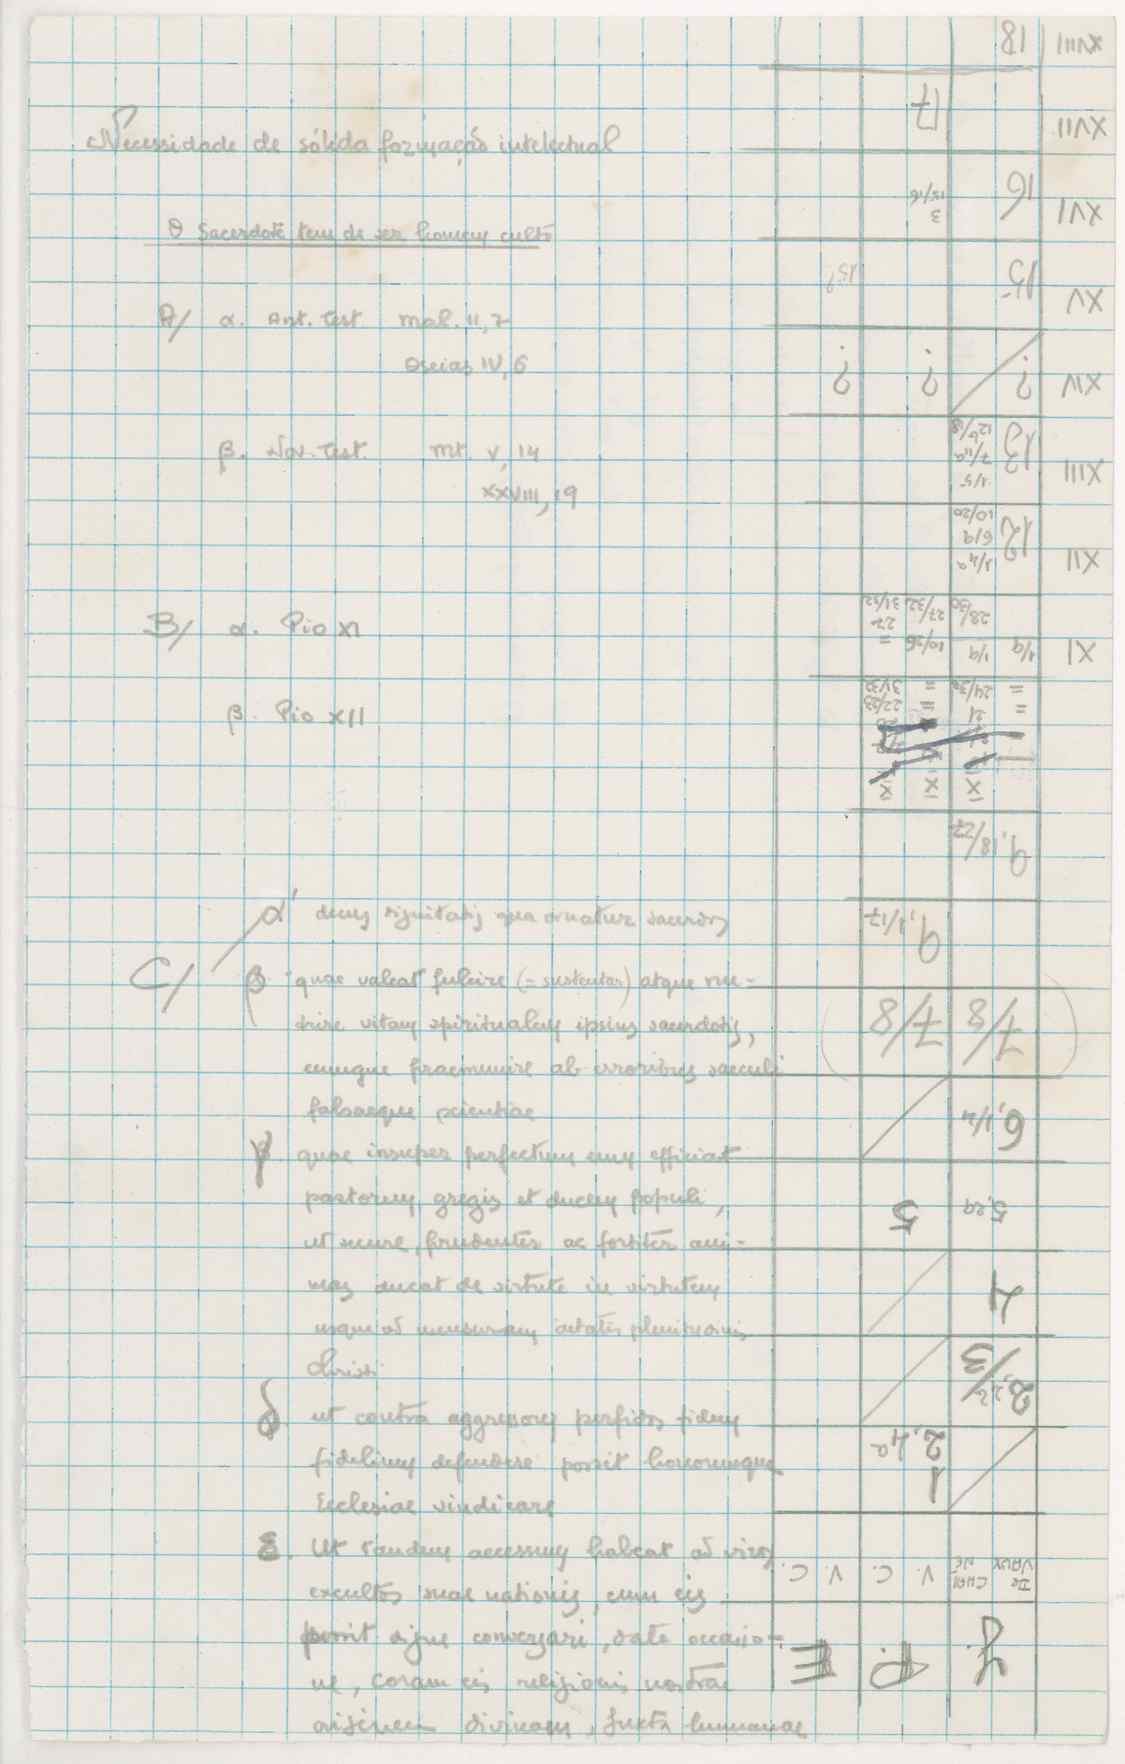 Necessidade de sólida formação intelectual
O Sacerdote tem de ser homem culto
A/ α. Ant. Test. Mal. II, 7
Oseias IV, 6
β. Nov. Test. Mt. V, 14
XXVIII, 19
B/ α. Pio XI
β. Pio XII
C/ α decus dignitatis qua ornatur sacerdos
β. quae valeat fulcire (= sustentar) atque nu-
trire vitam spiritualem ipsius sacerdotis,
eumque praemunire ab erroribus saeculi
falsaeque scientiae
γ. quae insuper perfectum eum efficiat
pastorem gregis et ducem populi,
ut secure, prudenter ac fortiter ani-
mas ducat de virtute in virtutem
usque ad mensuram aetatis plenitudinis
Christi
δ. ut contra aggressores perfidos fidem
fidelium defendere possit honoremque
Ecclesiae vindicare
ε. Ut tandem accessum habeat ad viros
excultos suae nationis, cum eis
possit digne conversari, data occasio-
ne, coram eis religionis nostrae
originem divinam, juxta humanae
J. P. E
De Vaux Chaine V. C. V. C.
1
2,4a
2,25/3
4
5
5,29
6,1/4
7/8 7/8
9,1/17
9,18/27
XI XI XI
= 21 = 22/23
= 24/30 = 31/32
XI 1/9 1/9 10/26 =
28/30 27/32 31/32
27
XII 12 1/4a
6/9
10/20
XIII 13 1/5
7/11a
12b/18
XIV ? ? ?
XV 15 15?
XVI 16 3
15/16
XVII 17
XVIII 18